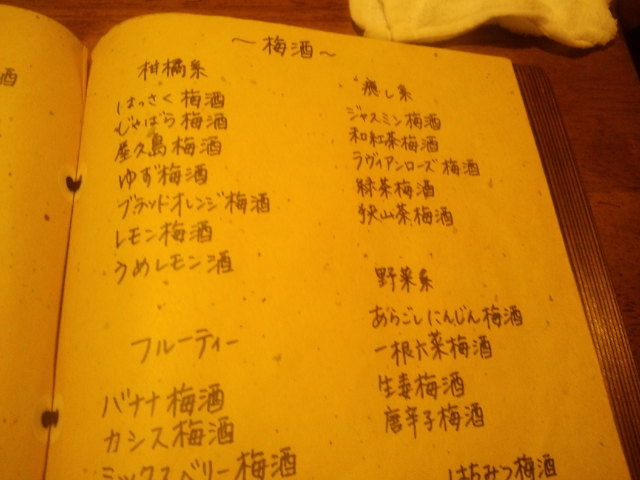 ～梅酒～
柑橘系
はっさく梅酒
じゃばら梅酒
屋久島梅酒
ゆず梅酒
ブラッドオレンジ梅酒
レモン梅酒
うめレモン酒
フルーティー
バナナ梅酒
カシス梅酒
ミックスベリー梅酒
癒し系
ジャスミン梅酒
和紅茶梅酒
ラヴィアンローズ梅酒
緑茶梅酒
狭山茶梅酒
野菜系
あらごしにんじん梅酒
一根六菜梅酒
生姜梅酒
唐辛子梅酒
はちみつ梅酒
酒